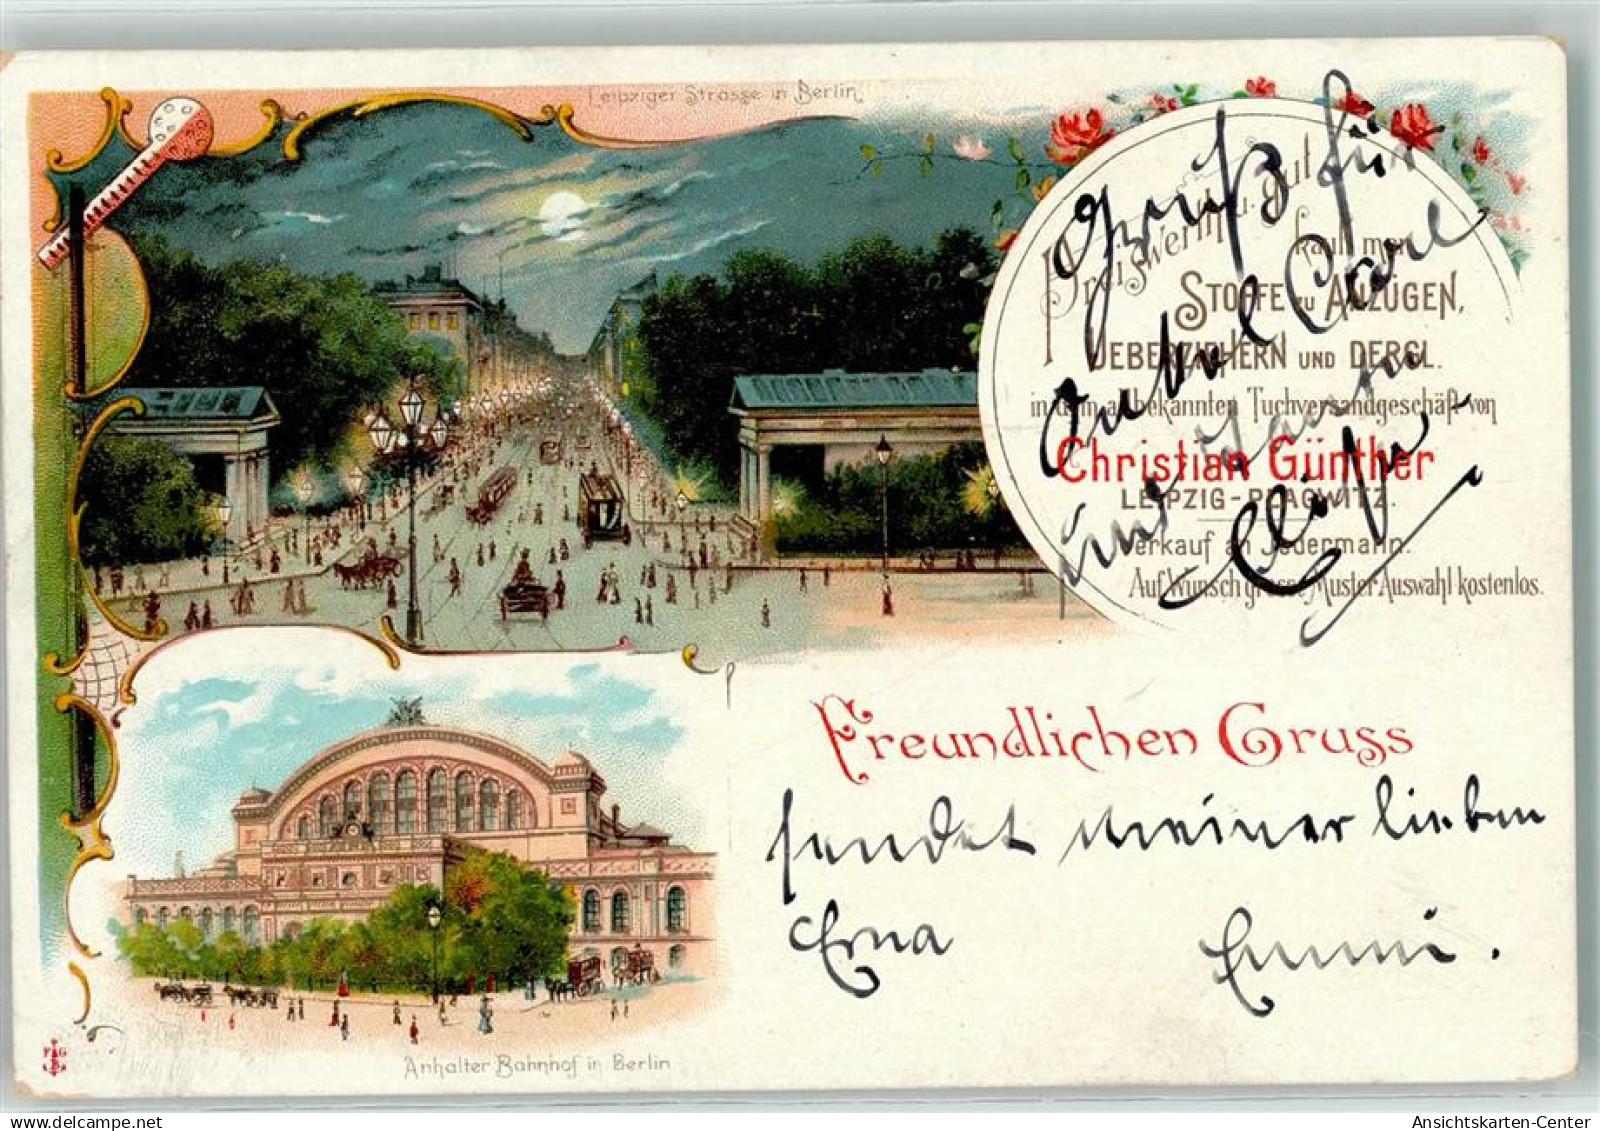 Leipziger Strasse in Berlin
Preiswerth u. gut
kauft man
STOFFE zu ANZÜGEN,
UEBERZIEHERN UND DERGL.
in dem altbekannten Tuchversandgeschäft von
Christian Günther
LEIPZIG-PLAGWITZ.
Verkauf an Jedermann.
Auf Wunsch grosse Muster Auswahl kostenlos.
Gruß für
Onkel Carl
und
Freundlichen Gruss
sendet meiner lieben
Erna Emmi.
Anhalter Bahnhof in Berlin
Ansichtskarten-Center